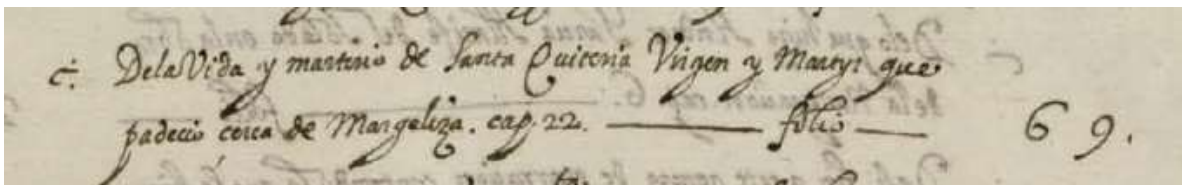 c. De la Vida y martirio de Santa Quiteria Virgen y Martyr que
padecio cerca de Margeliza. cap. 22. folio 69.